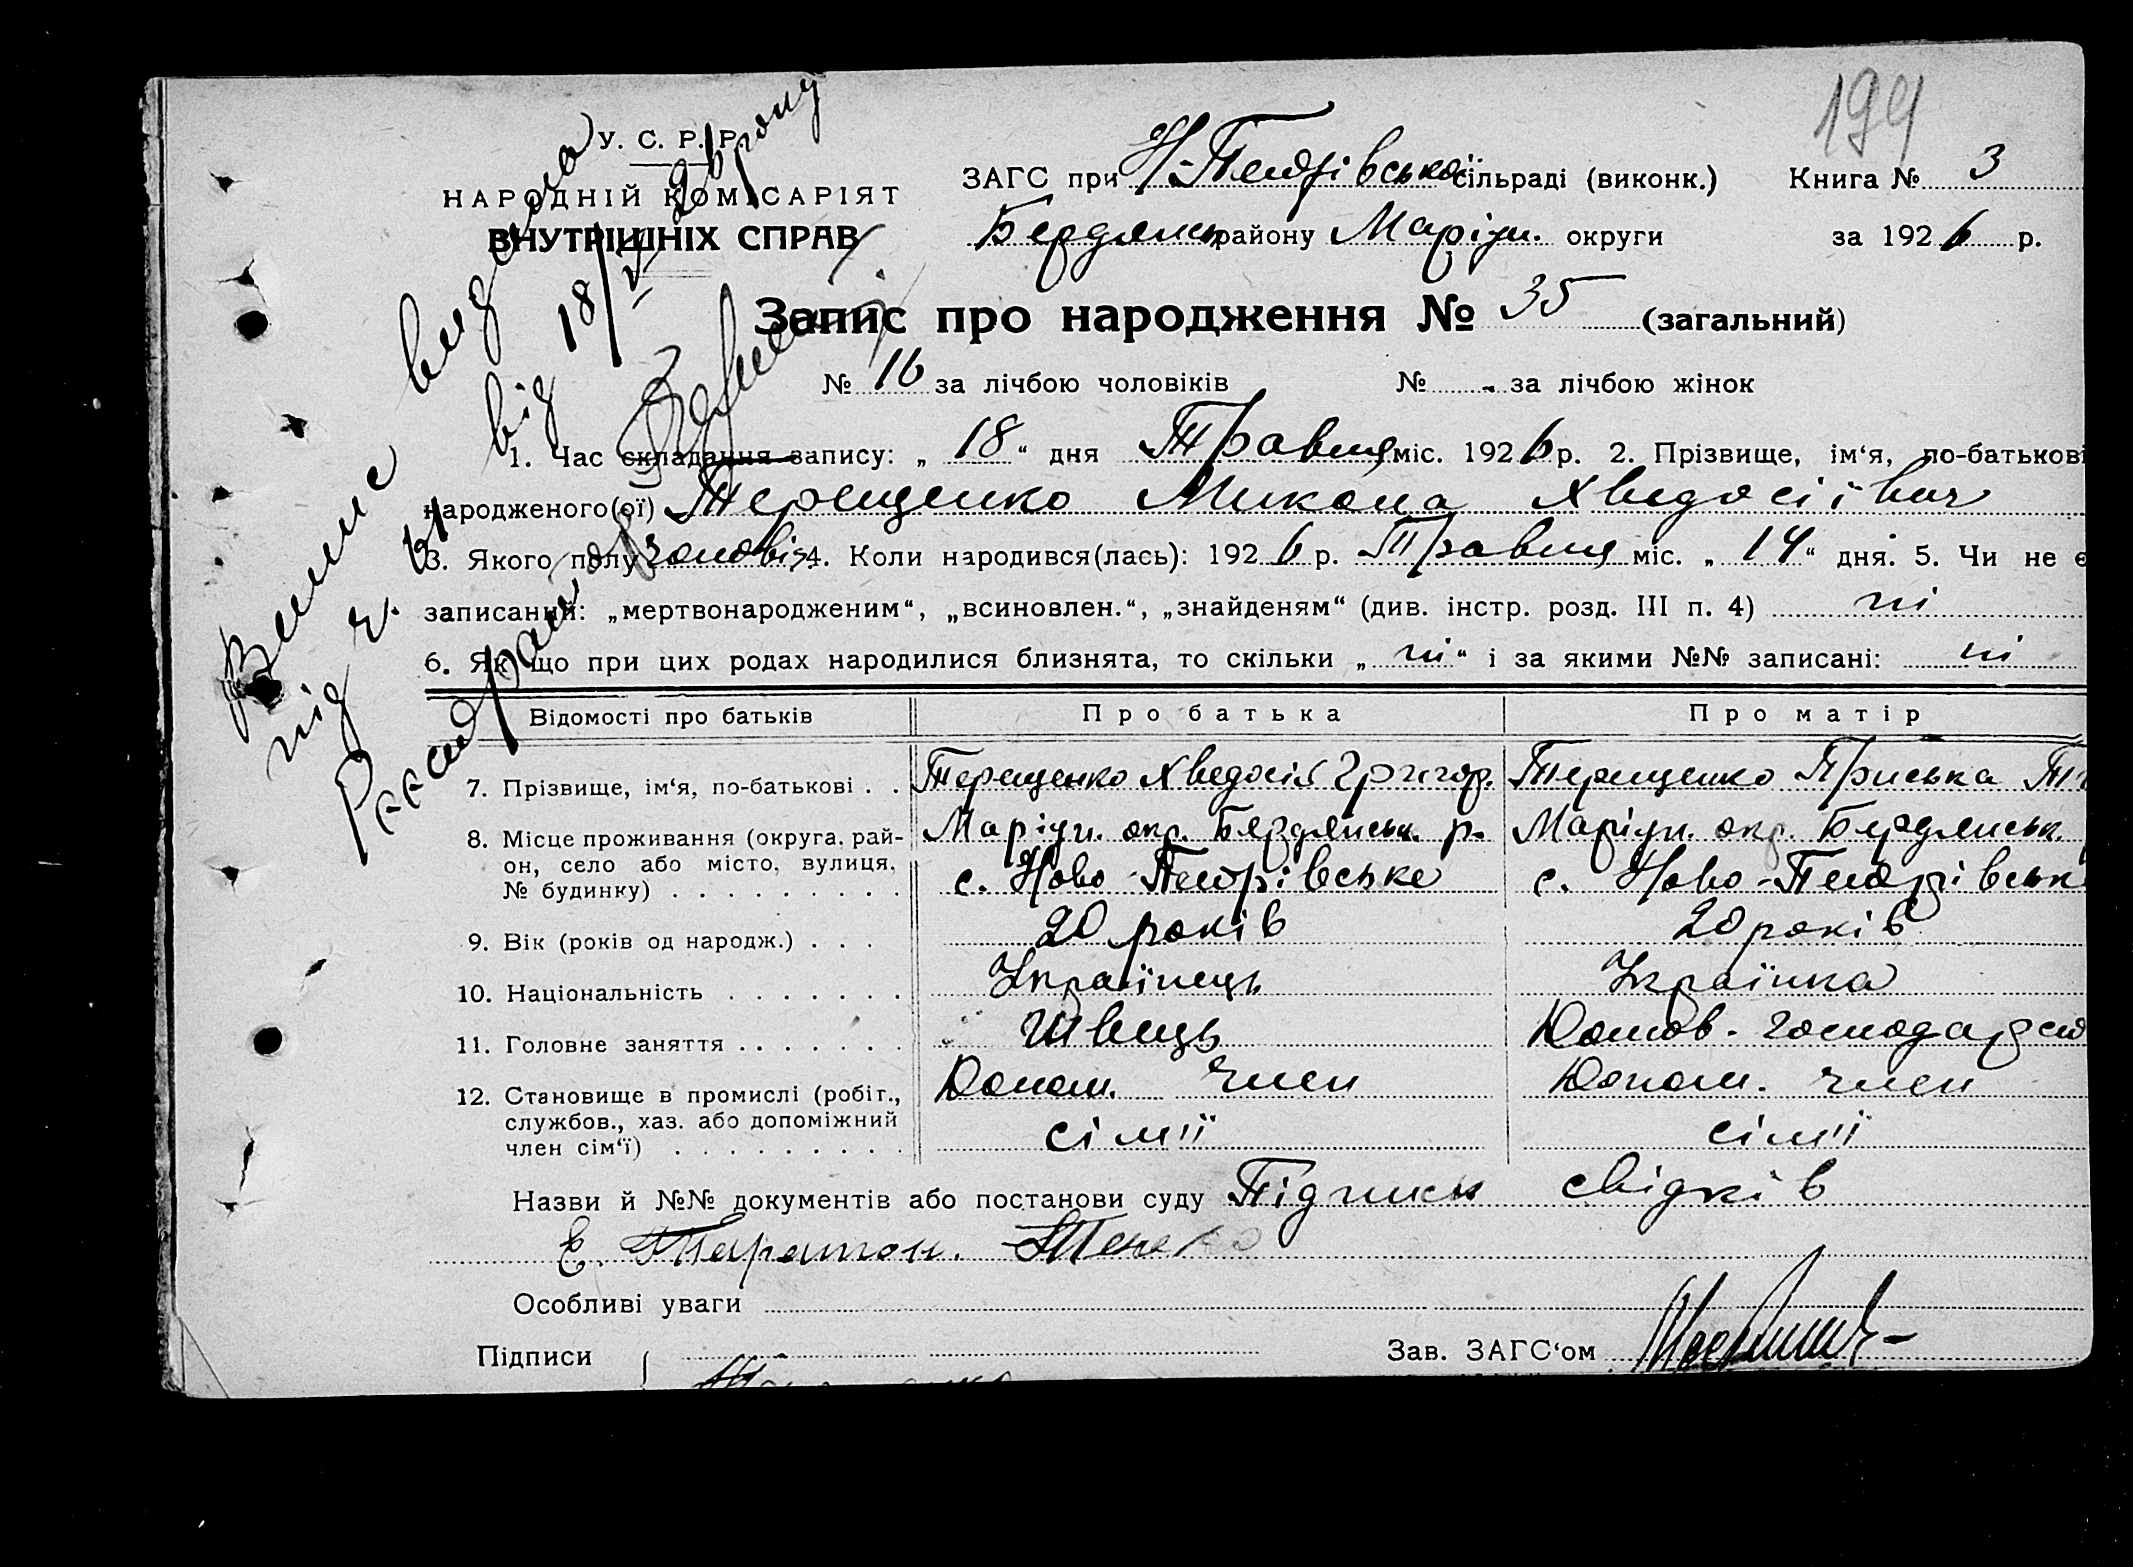 194
У. С. Р. Р.
НАРОДНІЙ КОМІСАРІЯТ
ВНУТРІШНІХ СПРАВ
ЗАГС при Н-Петрівської сільраді (виконк.) Книга № 3
Бердянськ району Маріуп. округи за 1926 р.
Запис про народження № 35 (загальний)
№ 16 за лічбою чоловіків № - за лічбою жінок
Випис видана
під ч. 21 від 18/V 26 року
1. Час складання запису: „ 18 “ дня Травня міс. 1926 р. 2. Прізвище, ім‘я, по-батькові
народженого(ої) Терещенко Микола Хведосіївич
3. Якого полу чоловіч 4. Коли народився(лась): 1926 р. Травня міс. „ 14 “ дня. 5. Чи не є
записаний: „мертвонародженим“, „всиновлен.“, „знайденям“ (див. інстр. розд. III п. 4) ні
6. Як що при цих родах народилися близнята, то скільки „ ні “ і за якими №№ записані: ні
Відомості про батьків Про батька Про матір
7. Прізвище, ім‘я, по-батькові . . Терещенко Хведосій Григор. Терещенко Приська
8. Місце проживання (округа, рай- Маріуп. окр. Бердянськ. р. Маріуп. окр. Бердянськ.
он, село або місто, вулиця, с. Ново-Петрівське с. Ново-Петрівськ
№ будинку) . . . . . . . . .
9. Вік (років од народж.) . . . 20 років 20 років
10. Національність . . . . . . . Українець Українка
11. Головне заняття . . . . . . . Швець Домов. господарст
12. Становище в промислі (робіт., Допом. член Допом. член
службов., хаз. або допоміжний сім'ї сім'ї
член сім‘ї) . . . . . . . . .
Назви й №№ документів або постанови суду Підписи свідків
Є.
Особливі уваги
Підписи Зав. ЗАГС‘ом